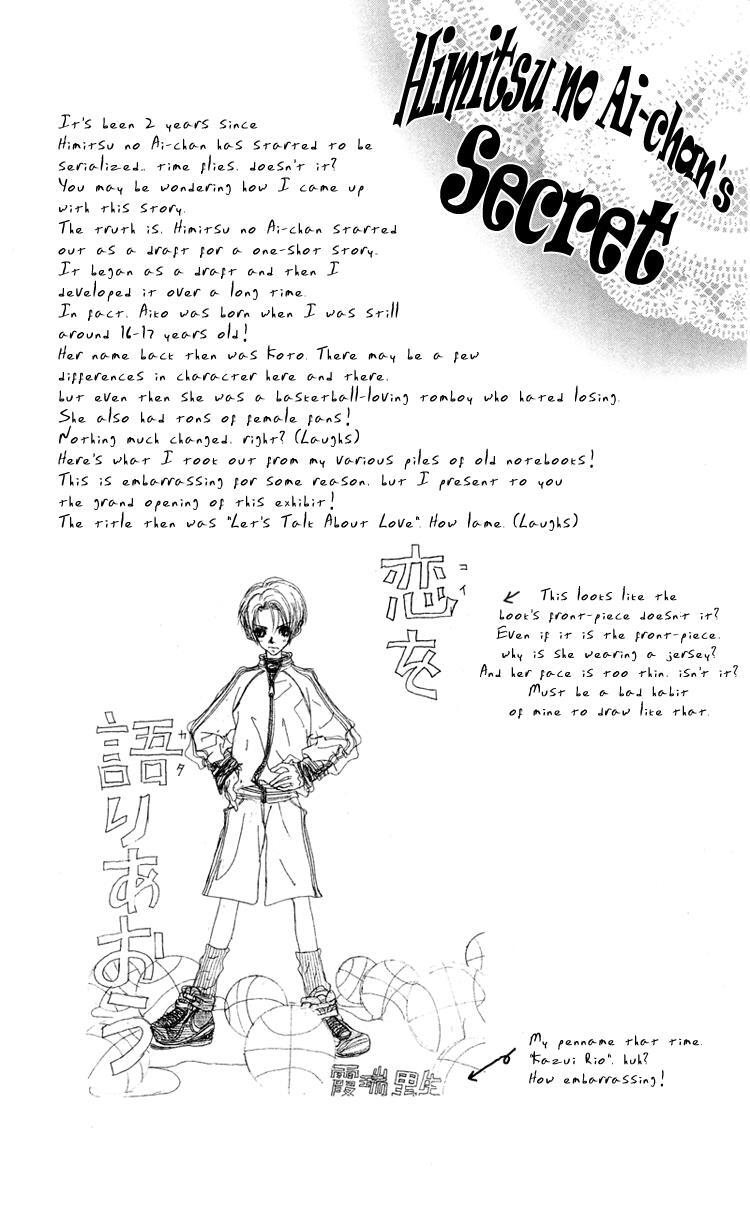 Himitsu no Ai-chan's
Secret
It's been 2 years since
Himitsu no Ai-chan has started to be
serialized.. time flies. doesn't it?
You may be wondering how I came up
with this story.
The truth is. Himitsu no Ai-chan started
out as a draft for a one-shot story.
It began as a draft and then I
developed it over a long time.
In fact. Aiko was born when I was still
around 16-17 years old!
Her name back then was Koto. There may be a few
differences in character here and there.
but even then she was a basketball-loving tomboy who hated losing.
She also had tons of female fans!
Nothing much changed. right? (Laughs)
Here's what I took out from my various piles of old notebooks!
This is embarrassing for some reason. but I present to you
the grand opening of this exhibit!
The title then was "Let's Talk About Love". How lame. (Laughs)
恋を
コイ
語りあおう
カタ
This looks like the
book's front-piece doesn't it?
Even if it is the front-piece.
why is she wearing a jersey?
And her face is too thin. isn't it?
Must be a bad habit
of mine to draw like that.
My penname that time.
"Kazui Rio". huh?
How embarrassing!
霞瑞里生